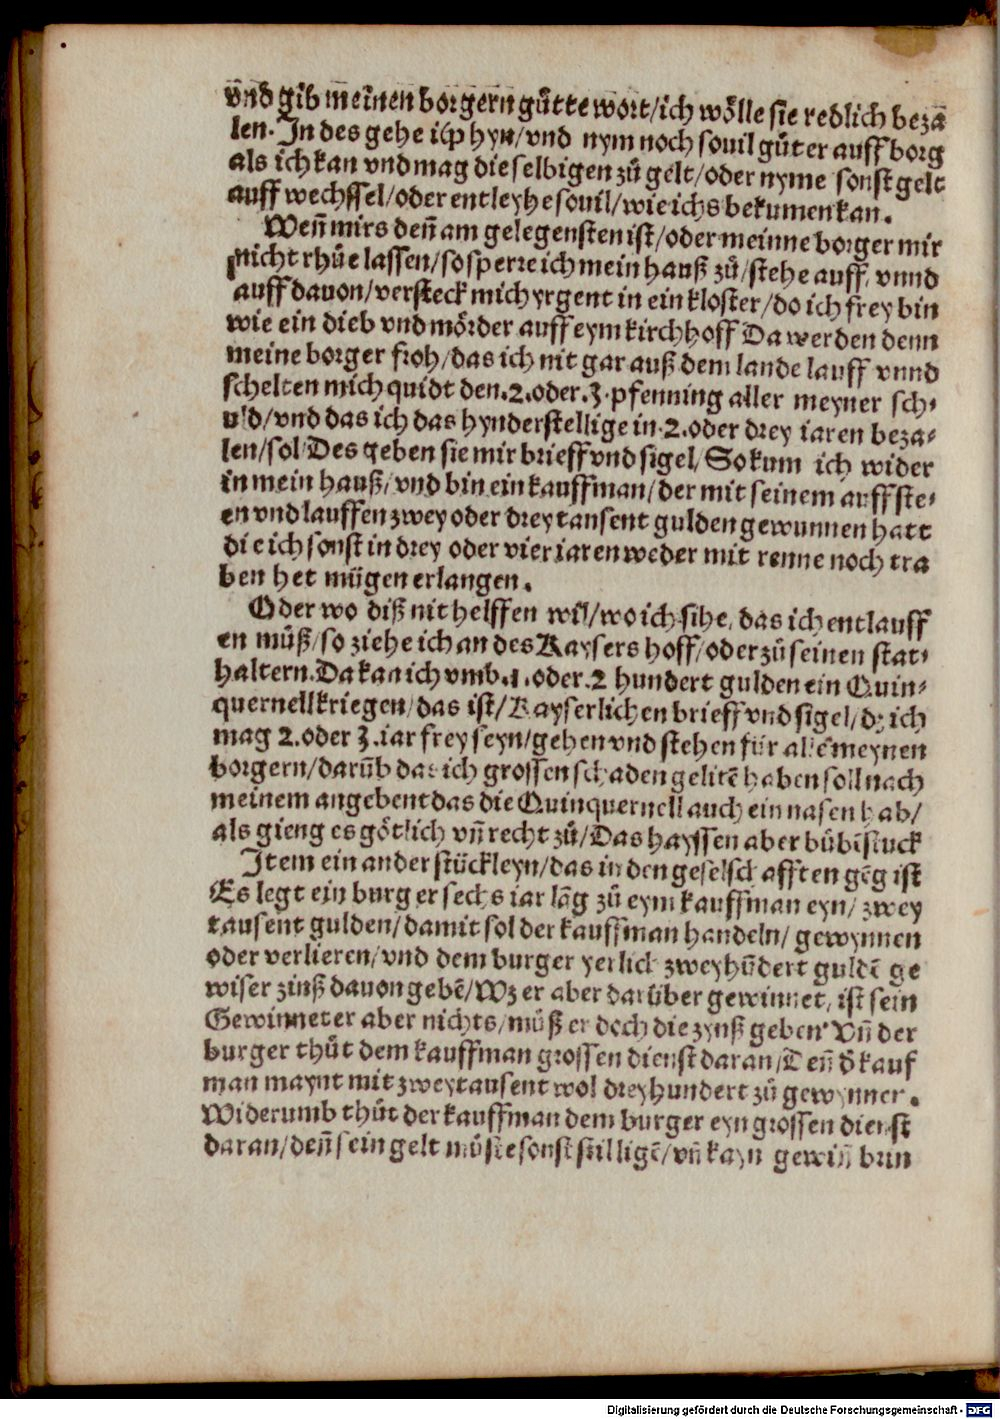 vnd gib meinen borgern gůtte wort/ich wőlle sie redlich bezā
len. In des gehe ich hyn/vnd nym noch souil gůter auff borg
als ich kan vnd mag die selbigen zů gelt/oder nyme sonst gelt
auff wechssel/oder entleyhe souil/wie ichs bekumen kan.
Weñ mirs deñ am gelegensten ist/oder meinne borger mir
nicht rhůe lassen/so sperre ich mein hauß zů/stehe auff/ vnnd
auff dauon/versteck mich yrgent in ein kloster/do ich frey bin
wie ein dieb vnd mőrder auff eym kirchhoff Da werden denn
meine borger froh/das ich nit gar auß dem lande lauff vnnd
schelten mich quidt den.2.oder.3.pfenning aller meyner sch⸗
uld/vnd das ich das hynderstellige in.2.oder drey iaren beza⸗
len/sol/Des geben sie mir brieff vnd sigel/So kum ich wider
in mein hauß/vnd bin ein kauffman/der mit seinem auffste⸗
en vnd lauffen zwey oder drey tansent gulden gewunnen hatt
die ich sonst in drey oder vier iaren weder mit renne noch tra
ben het műgen erlangen.
Oder wo diß nit helffen wil/wo ich sihe, das ich entlauff
en můß/so ziehe ich an des Kaysers hoff/oder zů seinen stat⸗
haltern.Da kan ich vmb.1.oder.2 hundert gulden ein Quin⸗
quernell kriegen/das ist/Kayserlichen brieff vnd sigel/dz ich
mag 2.oder 3.iar frey seyn/gehen vnd stehen für allē meynen
borgern/darūb das ich grossen schaden gelitē haben soll nach
meinem angebent das die Quinquernell auch ein nasen hab/
als gieng es gőtlich vñ recht zů/Das hayssen aber bůbēstuck
Item ein ander stückleyn/das in den geselschafften gēg ist
Es legt ein burger sechs iar lāg zů eym kauffman eyn/ zwey
tausent gulden/damit sol der kauffman handeln/ gewynnen
oder verlieren/vnd dem burger yerlich zweyhūdert guldē ge
wiser zinß dauon gebē/Wz er aber darüber gewinnet, ist sein
Gewinnet er aber nichts/můß er doch die zynß geben/ Vñ der
burger thůt dem kauffman grossen dienst daran/Deñ d̄ kauf
man maynt mit zweytausent wol dreyhundert zů gewynnen.
Widerumb thůt der kauffman dem burger eyn grossen dienst
daran/deñ sein gelt můste sonst still ligē/vñ kayn gewiñ brin
Digitalisierung gefördert durch die Deutsche Forschungsgemeinschaft - DFG